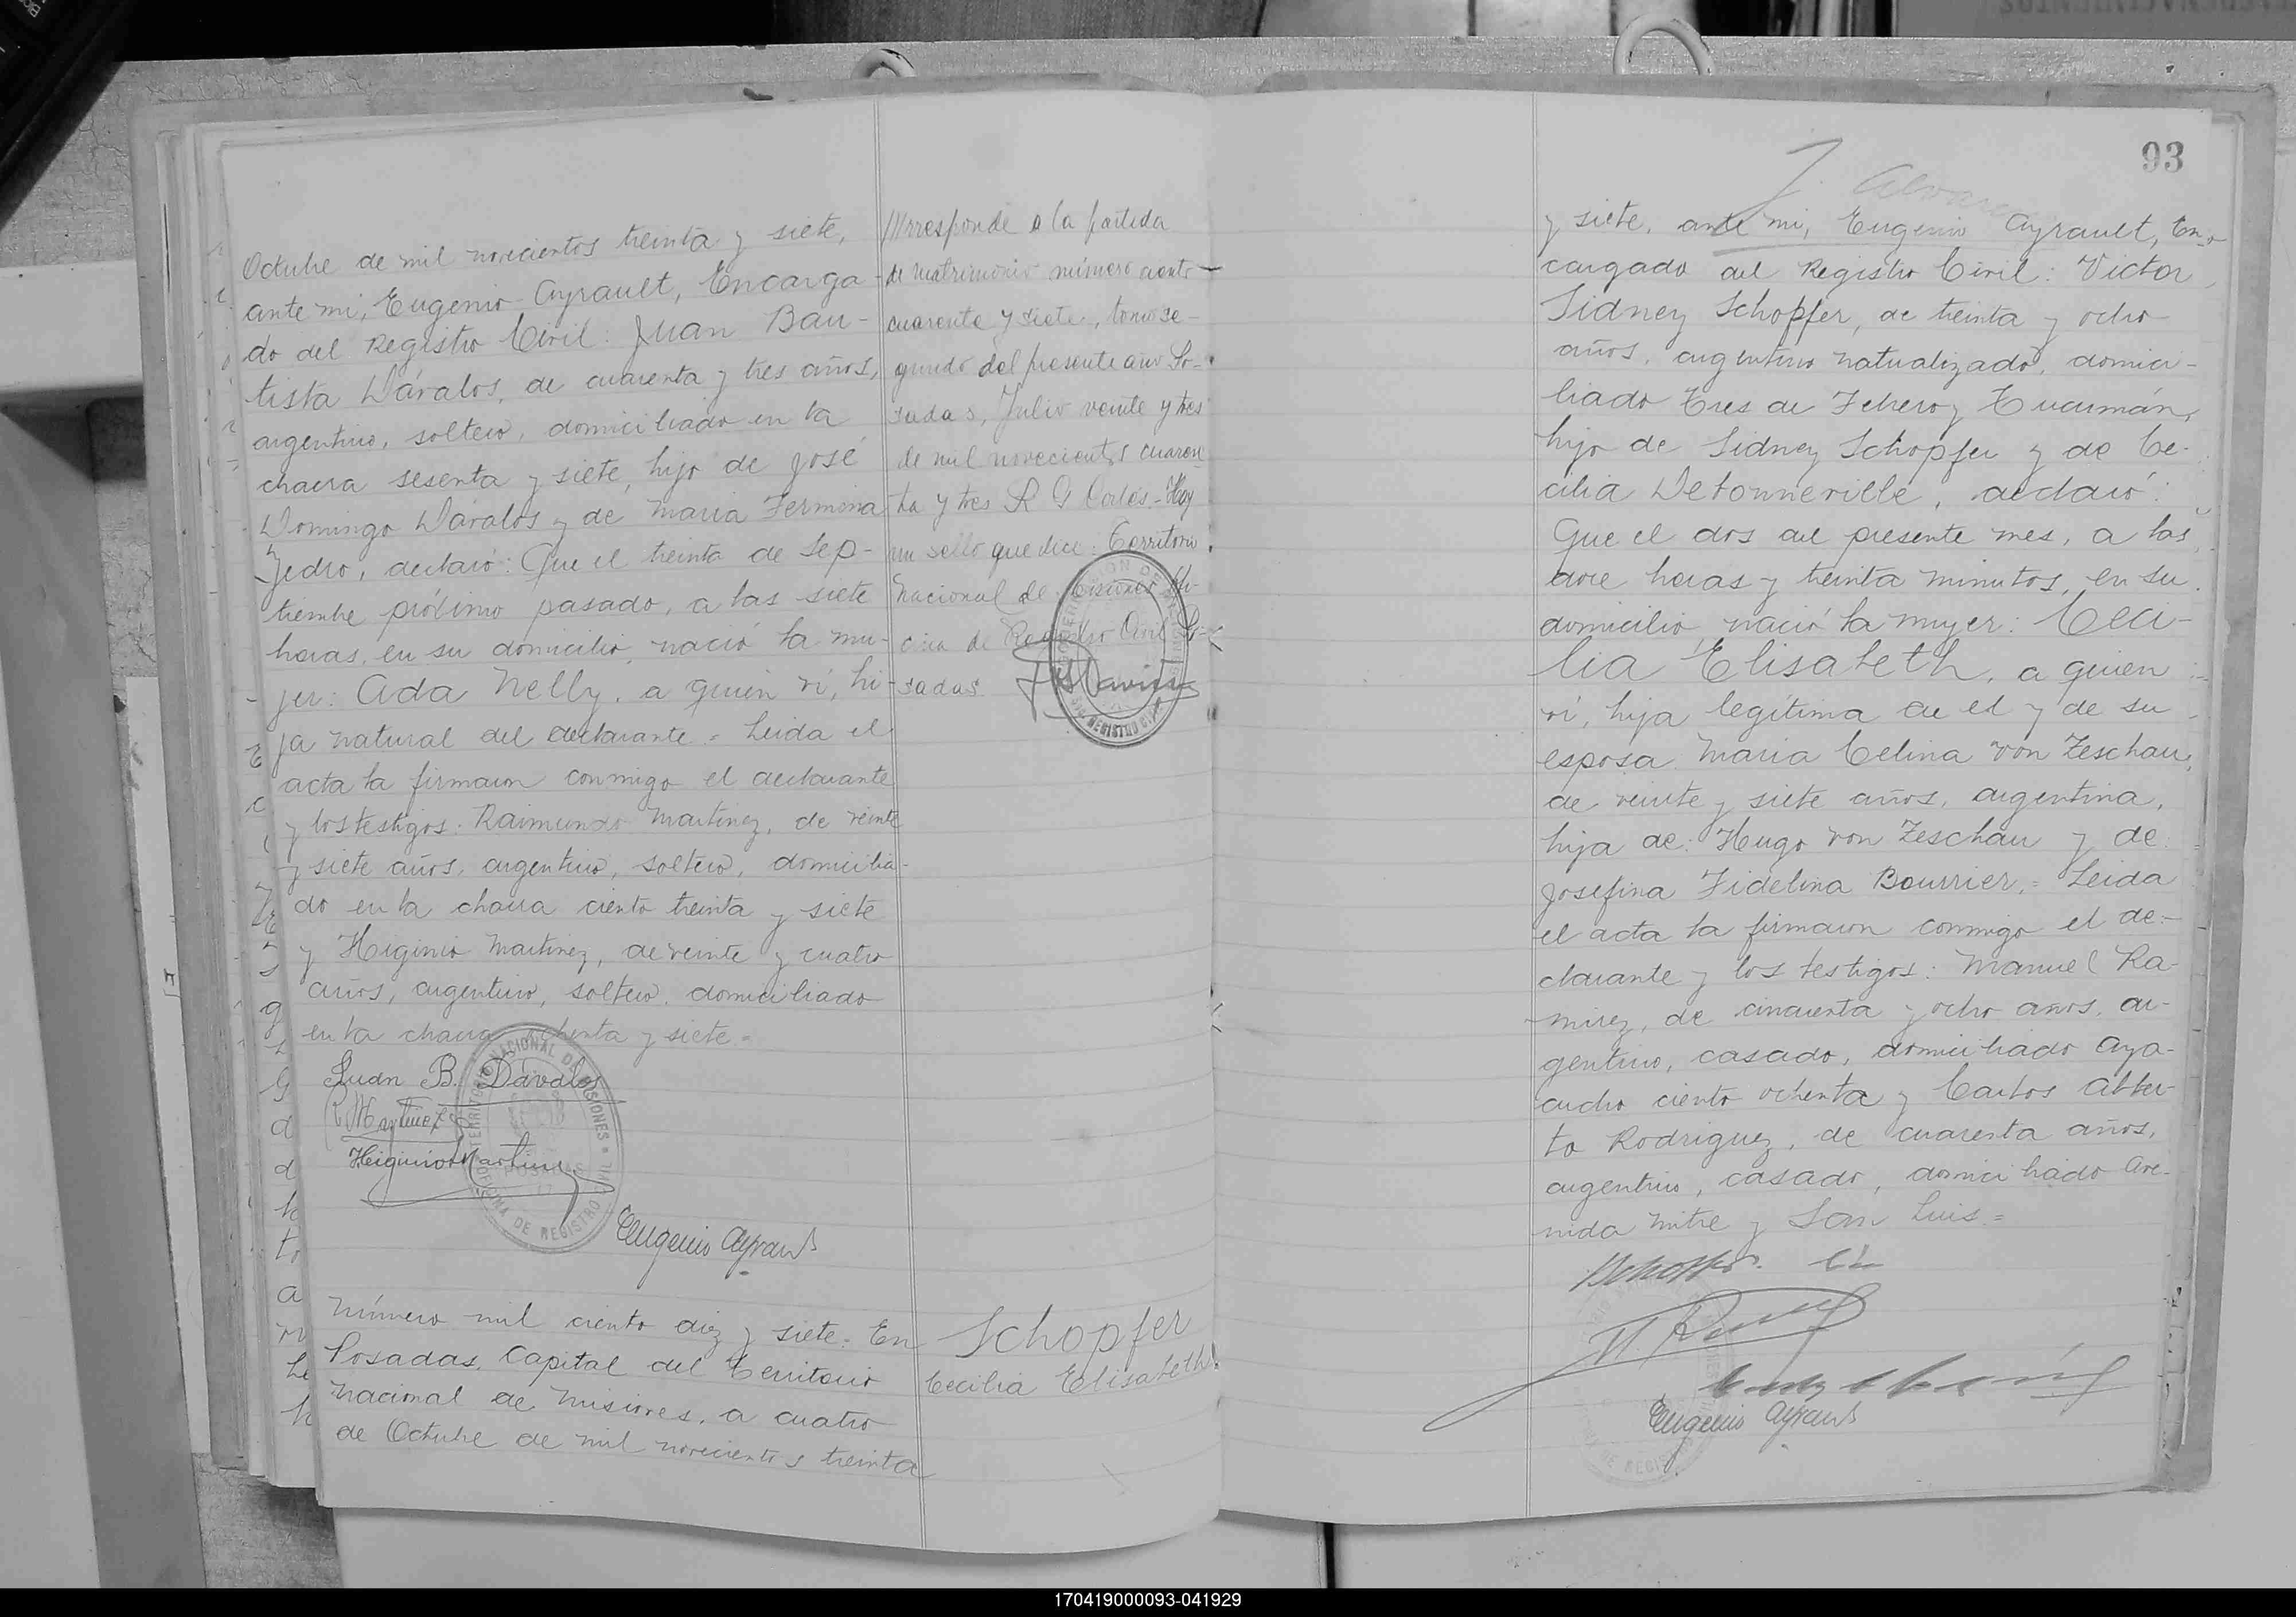 Octubre de mil novecientos treinta y siete,
ante mi, Eugenio Ayrault, Encarga-
do del Registro Civil: Juan Bau-
tista Dávalos, de cuarenta y tres años,
argentino, soltero, domiciliado en la
chacra sesenta y siete, hijo de José
Domingo Dávalos y de Maria Fermina
declaró: Que el treinta de Sep-
tiembre próximo pasado, a las siete
horas, en su domicilio, nació la mu-
jer: Ada Nelly, a quien vi, hi-
ja natural del declarante.= Leida el
acta la firmaron conmigo el declarante
y los testigos: Raimundo Martinez, de veinte
y siete años, argentino, soltero, domicilia-
do en la chacra ciento treinta y siete
y Higinio Martinez, de veinte y cuatro
años, argentino, soltero, domiciliado
en la chacra ochenta y siete.=
Juan B. Davalos
R Martinez
Higinio Martinez
Eugenio Ayrault
TERRITORIO NACIONAL DE MISIONES
OFICINA DE REGISTRO CIVIL
POSADAS
Corresponde a la partida
de matrimonio número ciento
cuarenta y siete, tomo se-
gundo del presente año Po-
sadas, Julio veinte y tres
de mil novecientos cuaren
ta y tres R G Cortés.- Hay
un sello que dice: Territorio
Nacional de Misiones Ofi-
cina de Registro Civil Po-
sadas
REGISTRO CIVIL
Número mil ciento diez y siete: En
Posadas, Capital del Territorio
Nacional de Misiones, a cuatro
de Octubre de mil novecientos treinta
Schopfer
Cecilia Elisabeth
93
J. Alvarez
y siete, ante mi, Eugenio Ayrault, En-
cargado del Registro Civil: Victor
Sidney Schopfer, de treinta y ocho
años, argentino naturalizado, domici-
liado Tres de Febrero y Tucumán,
hijo de Sidney Schopfer y de Ce-
cilia Detonneville, declaró:
Que el dos del presente mes, a las
doce horas y treinta minutos, en su
domicilio, nació la mujer: Ceci-
lia Elisabeth, a quien
vi, hija legítima de el y de su
esposa Maria Celina von Zeschau,
de veinte y siete años, argentina,
hija de: Hugo von Zeschau y de
Josefina Fidelina Bourrier.= Leida
el acta la firmaron conmigo el de-
clarante y los testigos: Manuel Ra-
mirez, de cincuenta y ocho años, ar-
gentino, casado, domiciliado Aya-
cucho ciento ochenta y Carlos Alber-
to Rodriguez, de cuarenta años,
argentino, casado, domiciliado Ave-
nida Mitre y San Luis.=
Eugenio Ayrault
170419000093-041929